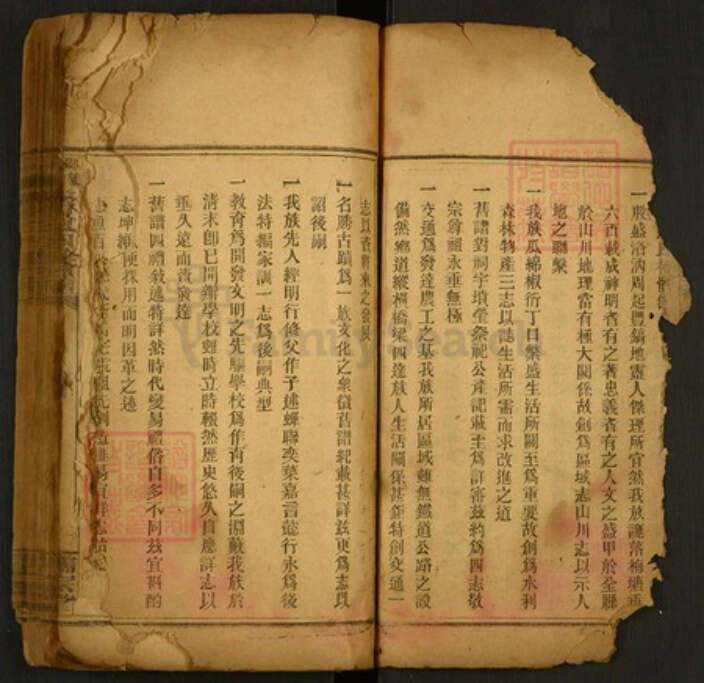 一殷盛沿汭周起豐鎬地靈人傑理所宜然我族誕落梅塘垂
六百載成神明者有之著忠義者有之人文之盛甲於全縣
於山川地理當有極大關係故創爲區域志山川志以示人
地之聯繫
一我族瓜綿椒衍丁口繁盛生活所關至爲重要故創爲水利
森林物產三志以誌生活所需而求改進之道
一舊譜對祠宇墳塋祭祀公產記載至爲詳審茲約爲四志敬
宗尊祖永垂無極
一交通爲發達農工之基我族所居區域雖無鐵道公路之設
備然鄉道縱橫橋梁四達族人生活關係甚鉅特創交通一
志以者將來之發展
一名勝古蹟爲一族文化之衆徵舊譜紀載甚詳茲更爲志以
詔後嗣
一我族先人經明行修父作子述蟬聯奕葉嘉言懿行永爲後
法特編家訓一志爲後嗣典型
一敎育爲開發文明之先驅學校爲作育後嗣之淵藪我族於
清末卽已開辦學校雖時立時輟然歷史悠久自應詳志以
垂久遠而資發達
一舊譜四禮敘述特詳然時代變易禮俗自多不同茲宜斟酌
志坤編便採用而明因革之迹
FamilySearch